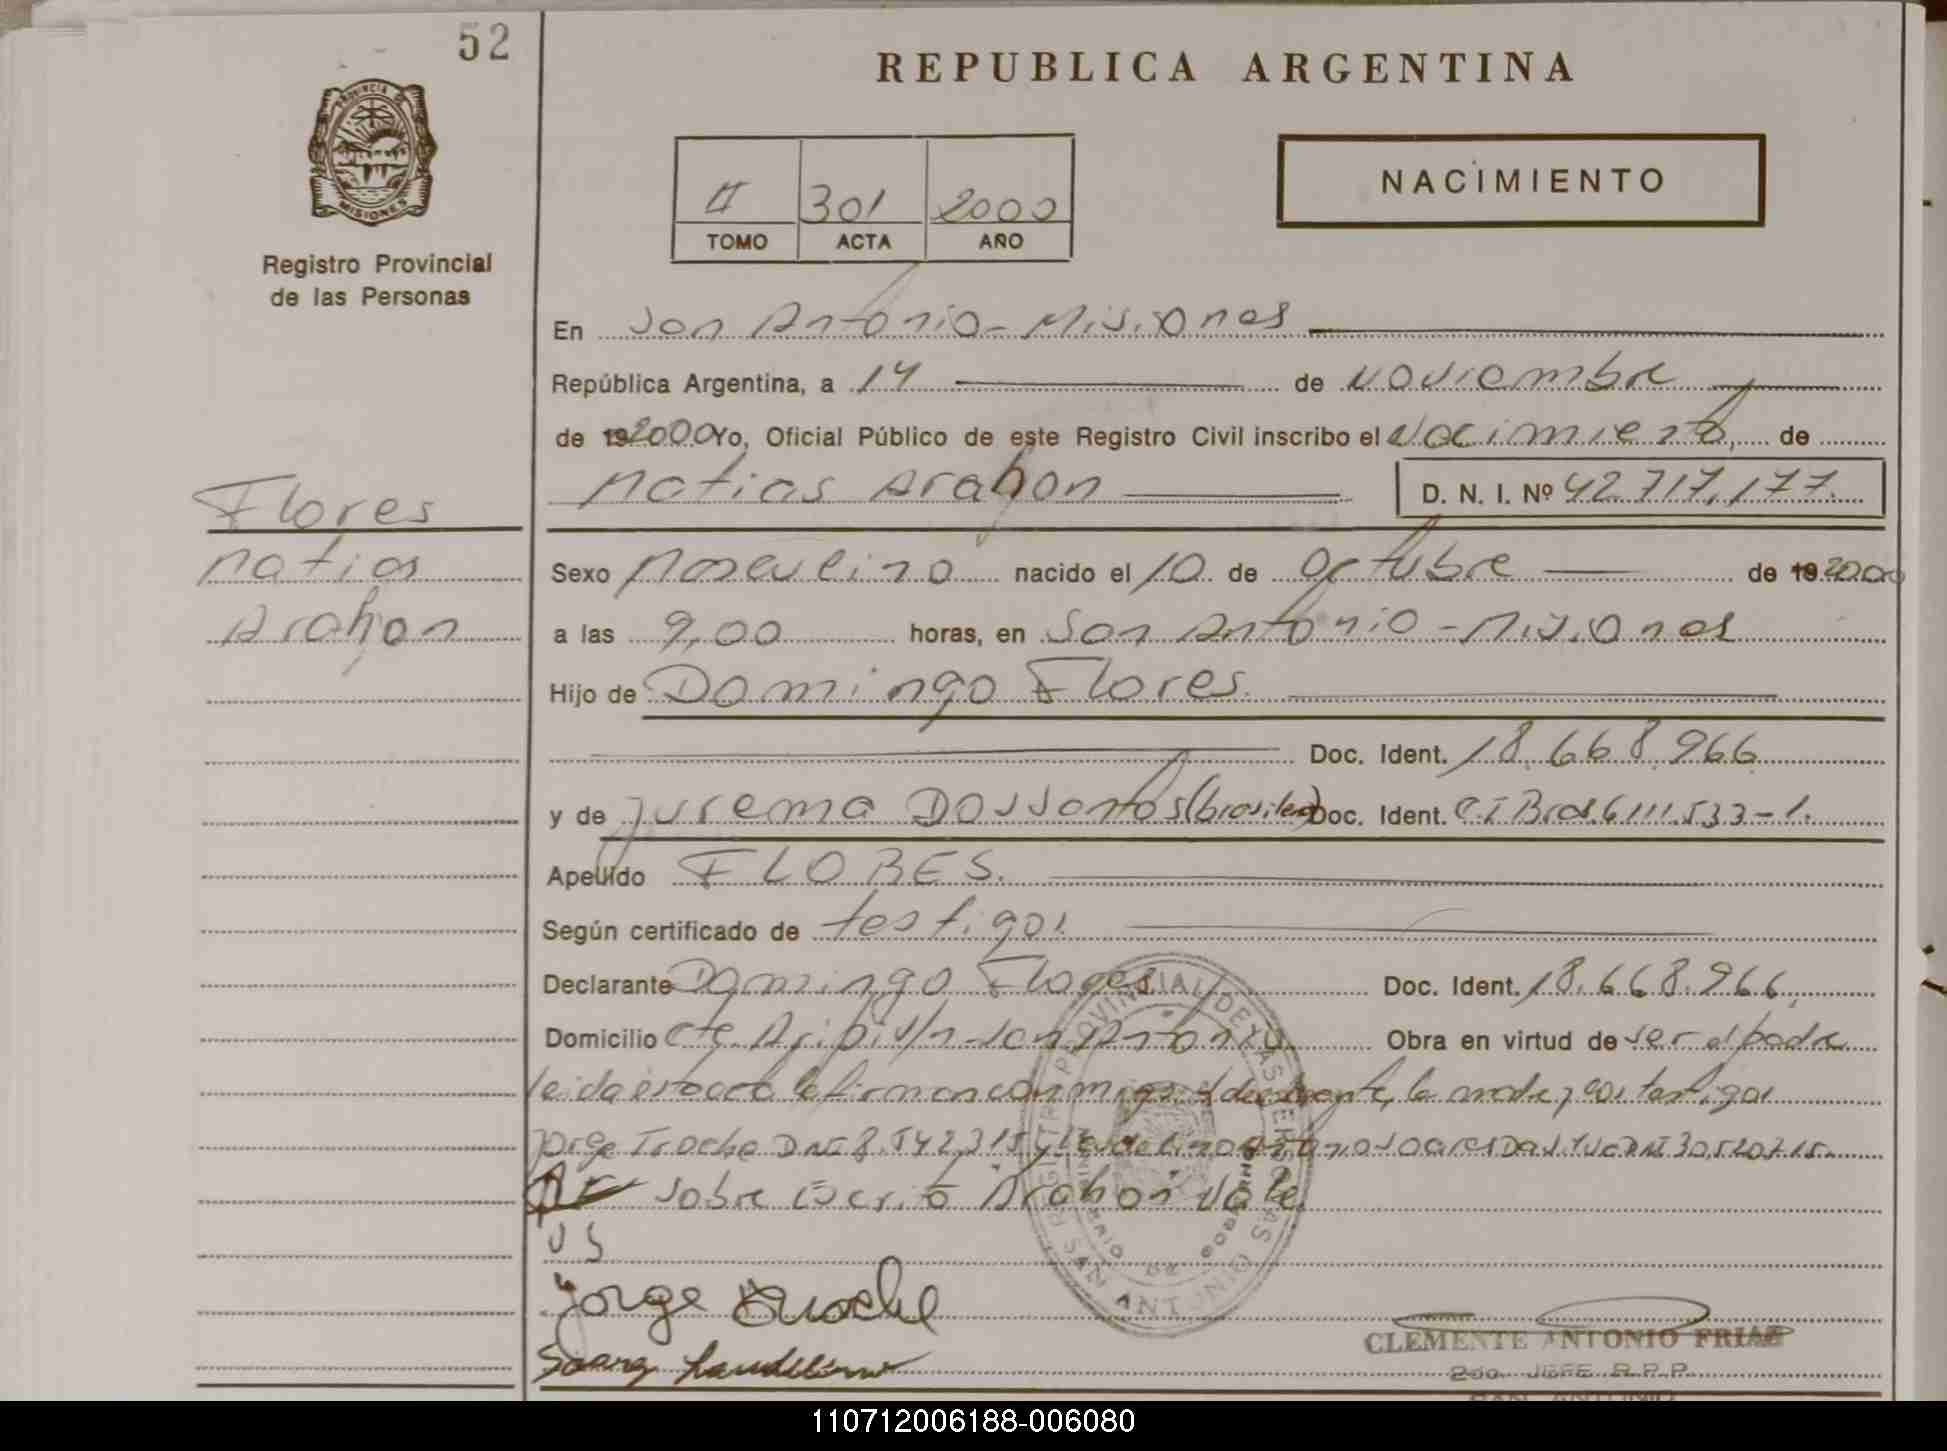 52
REPUBLICA ARGENTINA
PROVINCIA DE
MISIONES
Registro Provincial
de las Personas
II 301 2000
TOMO ACTA AÑO
NACIMIENTO
En San Antonio - Misiones
República Argentina, a 14 de Noviembre
de 192000 Yo, Oficial Público de este Registro Civil inscribo el Nacimiento, de
Matias Arahon D. N. I. Nº 42.717.177.
Flores
Matias
Arahon
Sexo Masculino nacido el 10 de Octubre de 192000
a las 9,00 horas, en San Antonio - Misiones
Hijo de Domingo Flores.
Doc. Ident. 18.668.966
y de Jurema Dos Santos (brasilera) Doc. Ident. C.I Bras. 6111.533-1.
Apellido FLORES.
Según certificado de testigos
Declarante Domingo Flores Doc. Ident. 18.668.966.
Domicilio San Antonio Obra en virtud de ser el padre
leida esta acta la firman conmigo el declarante, la madre, los testigos
Jorge Troche DNI 8.542.315 y DNI 30.520.715.
sobre escrito Arahon Vale.
Jorge Troche
Soarez Laudelino
REGISTRO PROVINCIAL DE LAS PERSONAS
MINISTERIO DE GOBIERNO
SAN ANTONIO
CLEMENTE ANTONIO FRIAS
2do. JEFE R.P.P.
SAN ANTONIO
110712006188-006080